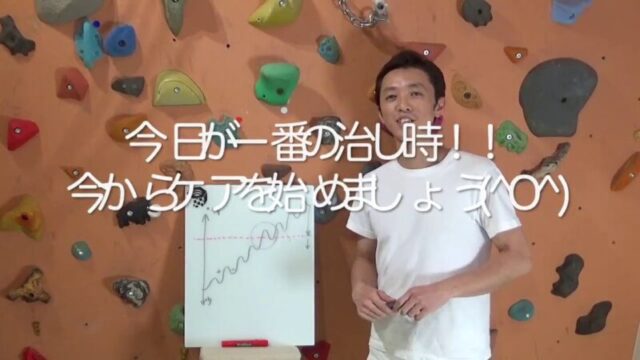 今日が一番の治し時！！
今からケアを始めましょう(^O^)